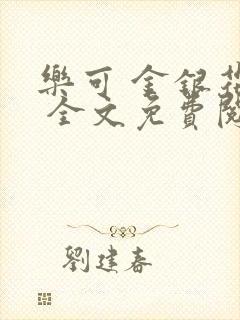 樂可 金銀花
全文免費閱
劉建春